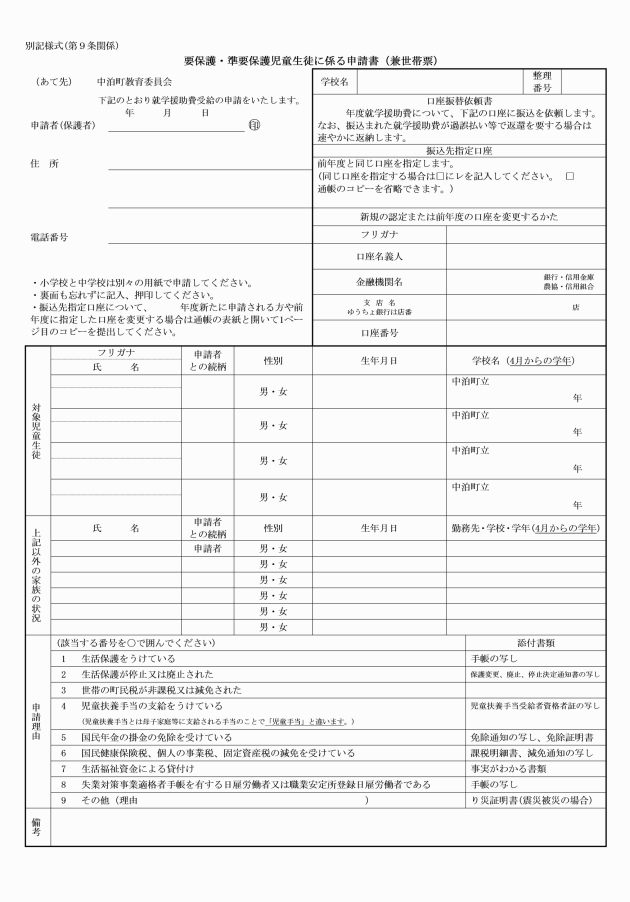 別記様式(第９条関係)
要保護・準要保護児童生徒に係る申請書（兼世帯票）
（あて先）　中泊町教育委員会
下記のとおり就学援助費受給の申請をいたします。
年　　月　　日
申請者(保護者)　㊞
住　所
電話番号
・小学校と中学校は別々の用紙で申請してください。
・裏面も忘れずに記入、押印してください。
・振込先指定口座について、　　年度新たに申請される方や前
年度に指定した口座を変更する場合は通帳の表紙と開いて1ペー
ジ目のコピーを提出してください。
学校名　整理
番号
口座振替依頼書
年度就学援助費について、下記の口座に振込を依頼します。
なお、振込まれた就学援助費が過誤払い等で返還を要する場合は
速やかに返納します。
振込先指定口座
前年度と同じ口座を指定します。
(同じ口座を指定する場合は□にレを記入してください。　□
通帳のコピーを省略できます。）
新規の認定または前年度の口座を変更するかた
フリガナ
口座名義人
金融機関名　銀行・信用金庫
農協・信用組合
支　店　名
ゆうちょ銀行は店番　店
口座番号
対象児童生徒
フリガナ
氏　　名
申請者
との続柄
性別　生年月日　学校名（4月からの学年）
男・女　中泊町立
年
男・女　中泊町立
年
男・女　中泊町立
年
男・女　中泊町立
年
上記以外の家族の状況
氏　　名　申請者
との続柄　性別　生年月日　勤務先・学校・学年(4月からの学年)
申請者　男・女
男・女
男・女
男・女
男・女
男・女
申請理由
（該当する番号を○で囲んでください）　添付書類
1　生活保護をうけている　手帳の写し
2　生活保護が停止又は廃止された　保護変更、廃止、停止決定通知書の写し
3　世帯の町民税が非課税又は減免された
4　児童扶養手当の支給をうけている　児童扶養手当受給者資格者証の写し
（児童扶養手当とは母子家庭等に支給される手当のことで「児童手当」と違います。）
5　国民年金の掛金の免除を受けている　免除通知の写し、免除証明書
6　国民健康保険税、個人の事業税、固定資産税の減免を受けている　課税明細書、減免通知の写し
7　生活福祉資金による貸付け　事実がわかる書類
8　失業対策事業適格者手帳を有する日雇労働者又は職業安定所登録日雇労働者である　手帳の写し
9　その他（理由　　　　）　り災証明書(震災被災の場合)
備考